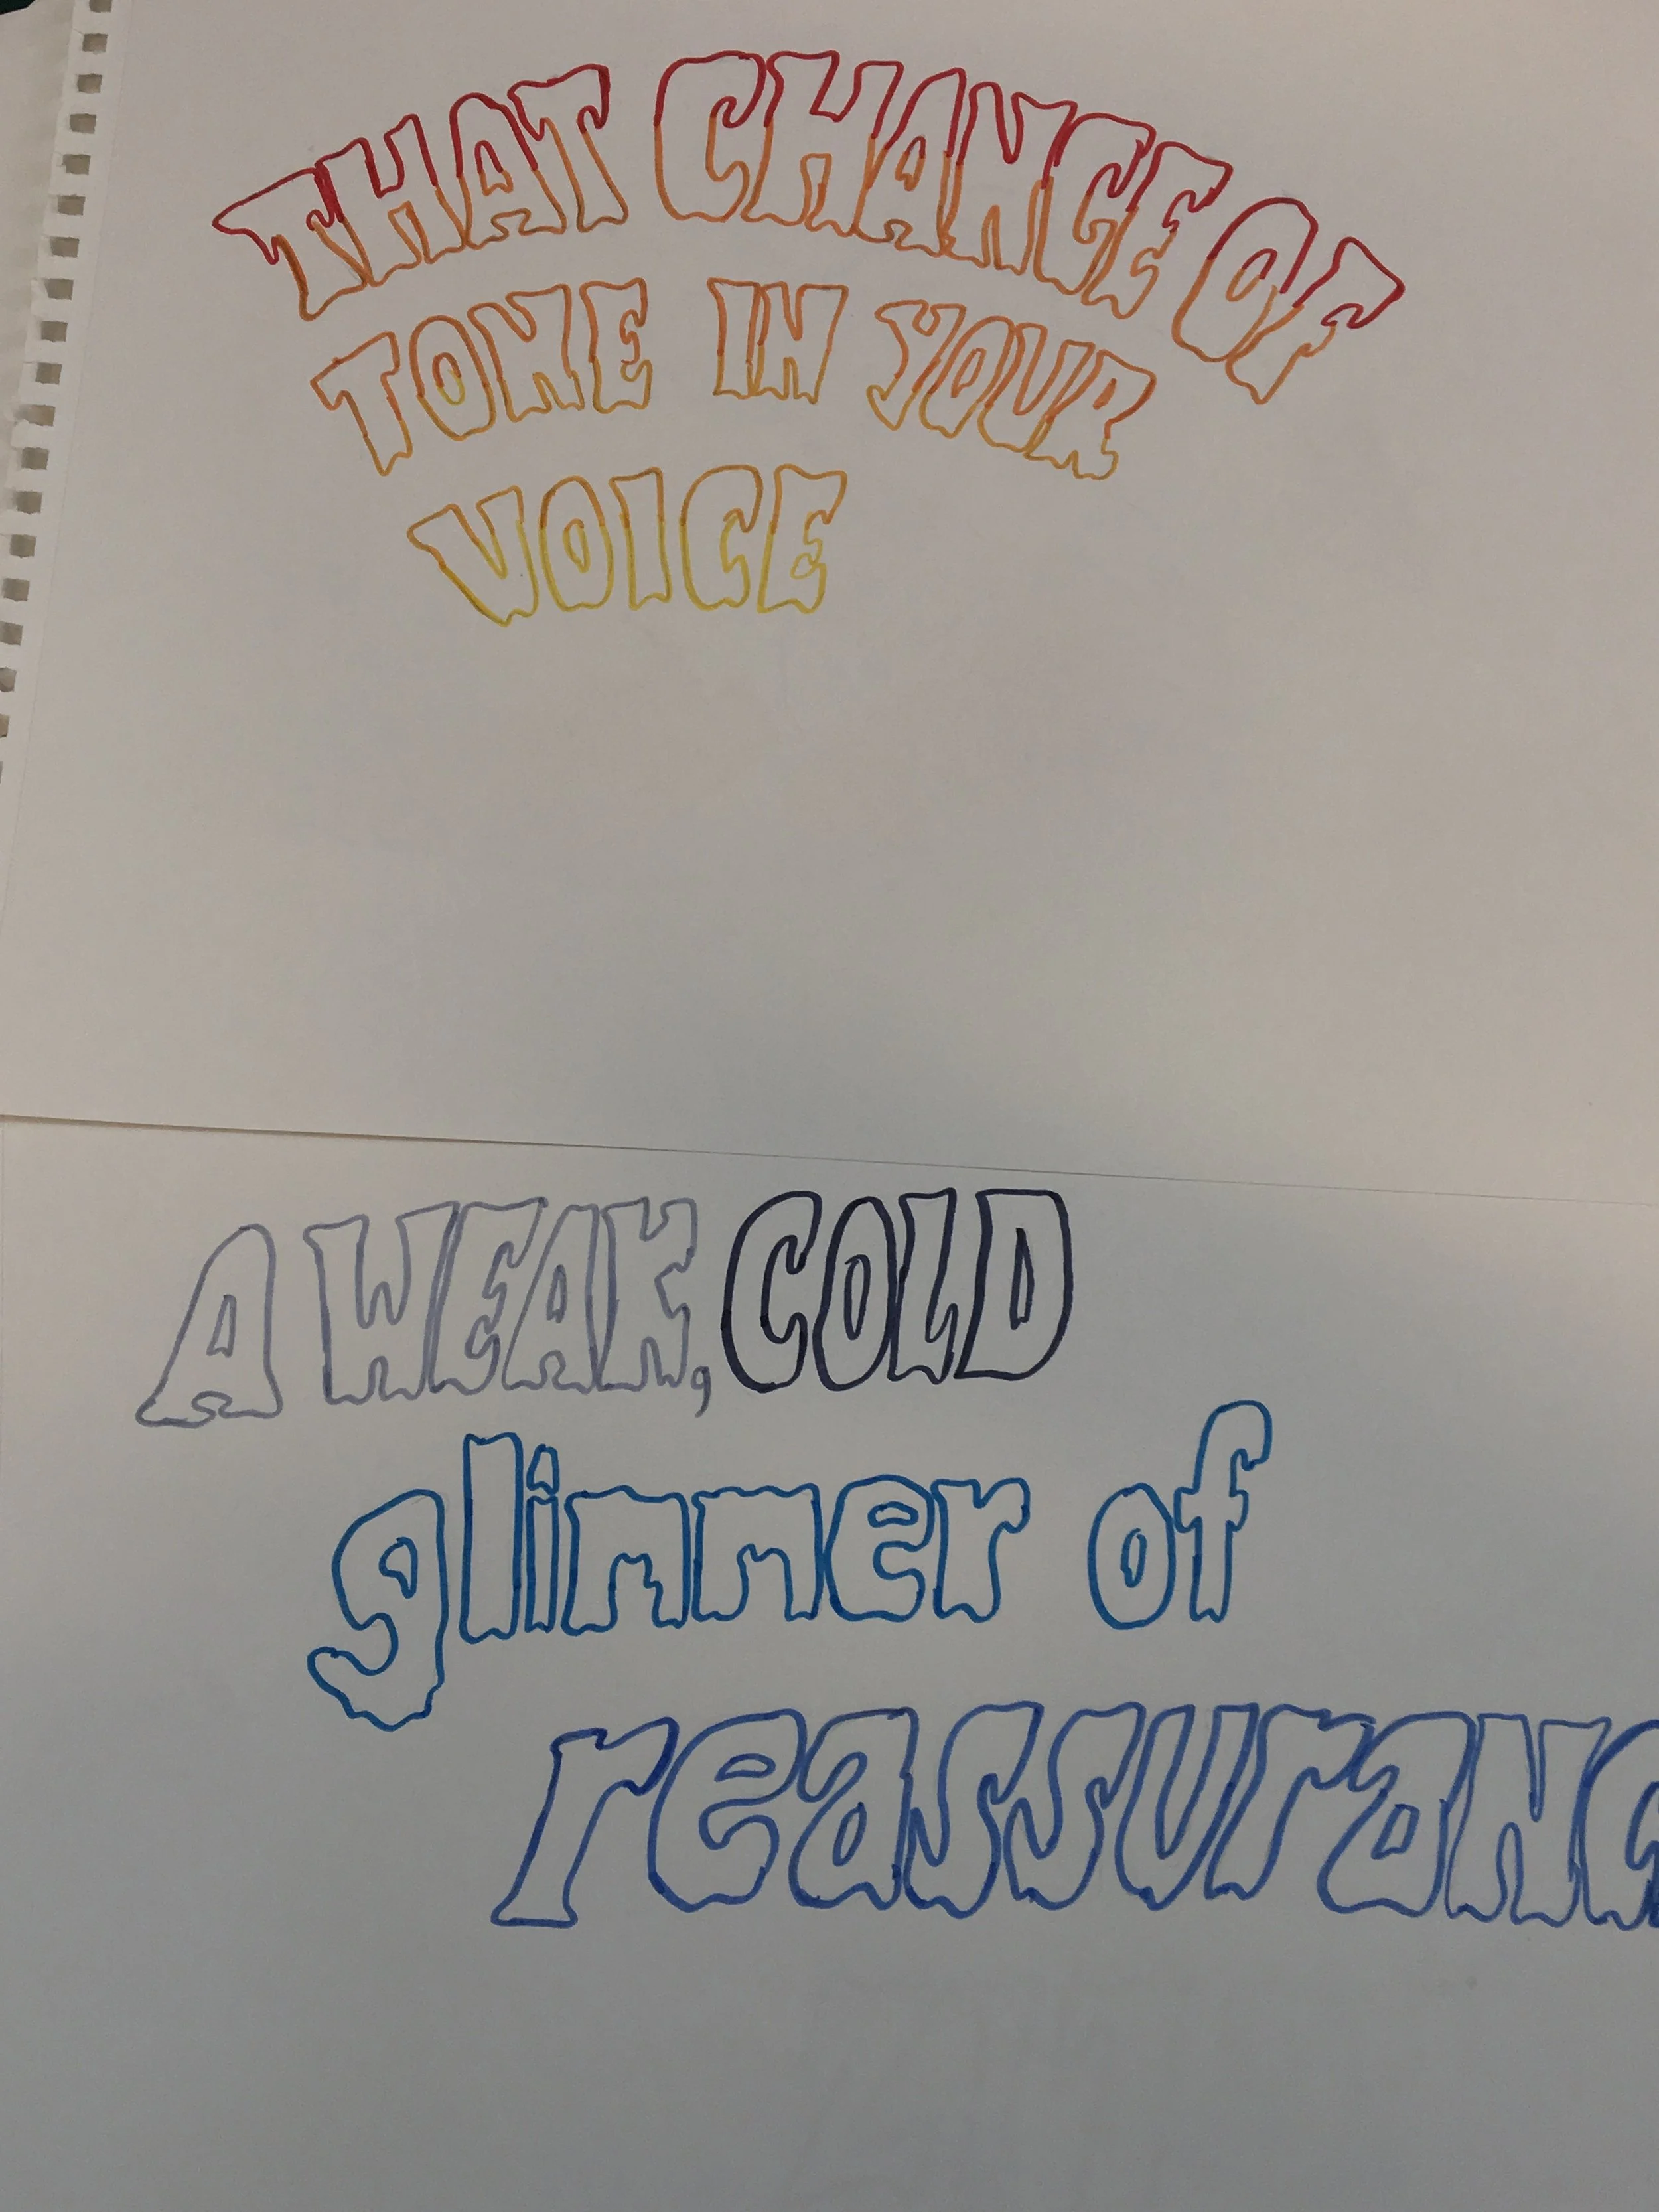 THAT CHANGE OF
TONE IN YOUR
VOICE
A WEAK, COLD
glimmer of
reassuranc